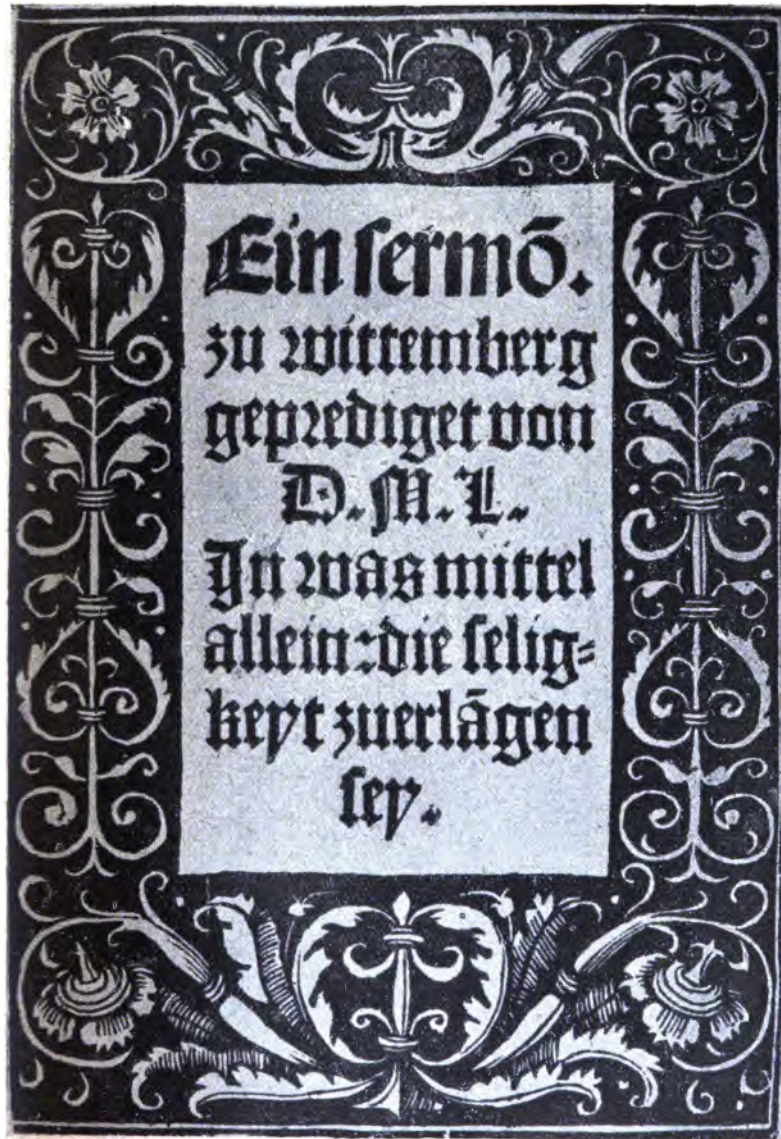 Ein ſermō.
zu wittemberg
geprediget von
D. M. L.
In was mittel
allein: die ſelig⸗
keyt zuerlāgen
ſey.